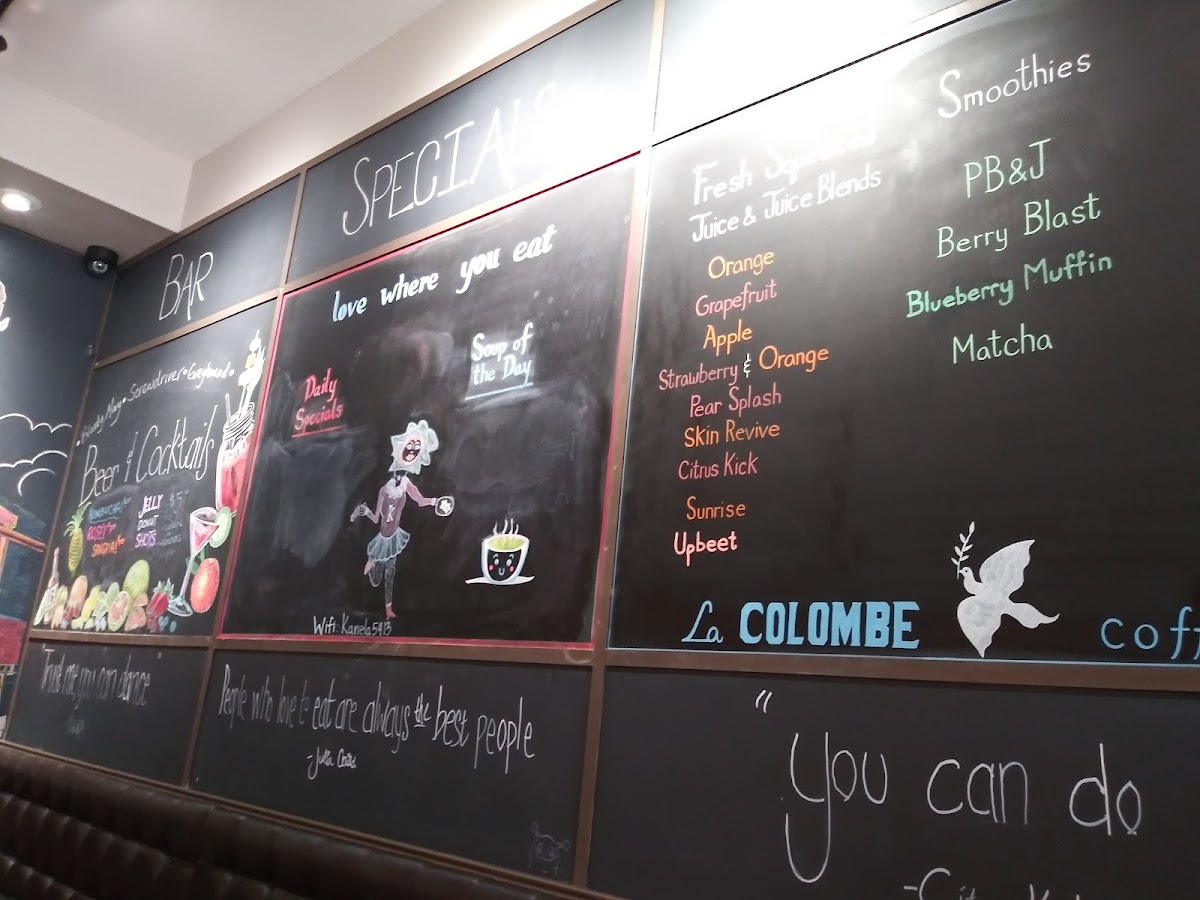 BAR
Bloody Mary • Screwdriver • Greyhound •
Beer & Cocktails
ROSE
SANGRIA
JELLY
DONUT
SHOTS
"Trust me, you can dance"
SPECIALS
love where you eat
Daily
Specials
Soup of
the Day
K
Wifi: Kanela5413
People who love to eat are always the best people
-Julia Child
Fresh Squeezed
Juice & Juice Blends
Orange
Grapefruit
Apple
Strawberry & Orange
Pear Splash
Skin Revive
Citrus Kick
Sunrise
Upbeet
Smoothies
PB&J
Berry Blast
Blueberry Muffin
Matcha
La COLOMBE
Coff
"You can do